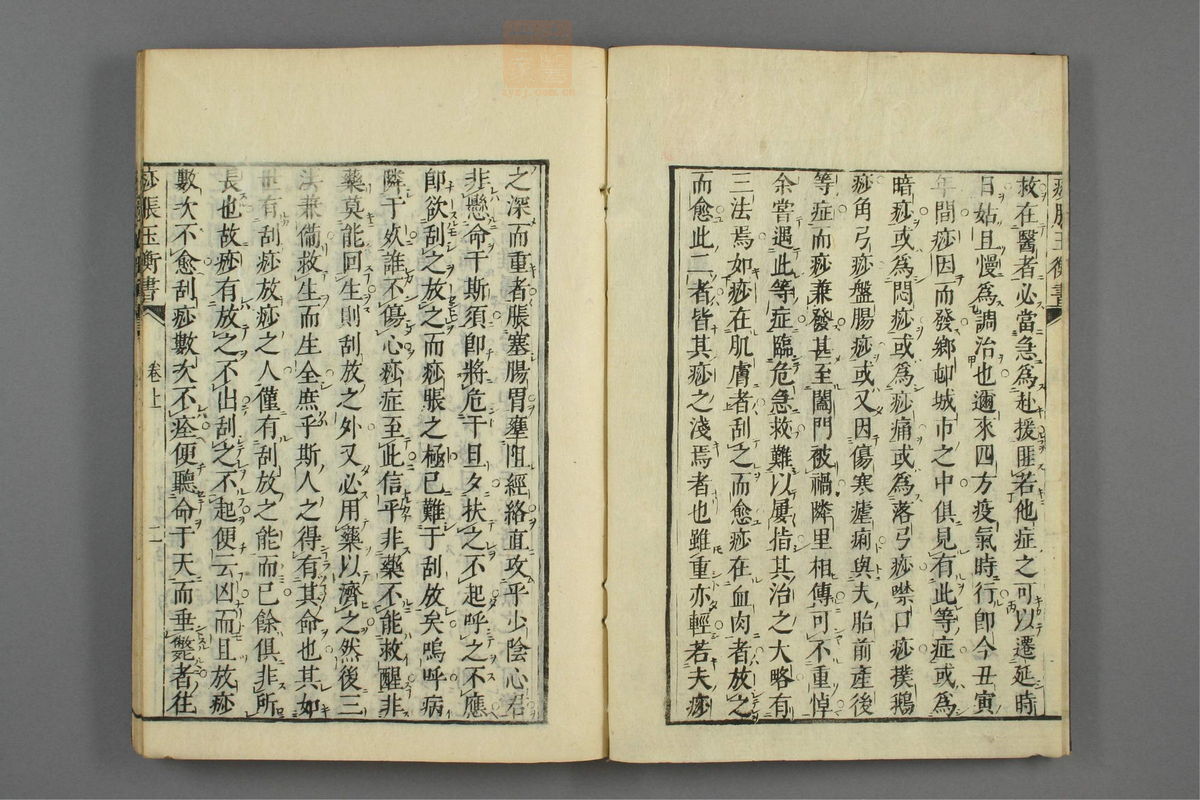 痧脹玉衡書
救在醫者必當急爲赴援匪若他症之可以遷延時
日姑且慢爲調治也邇來四方疫氣時行卽今丑寅
年間痧因而發鄉邨城市之中俱見有此等症或爲
暗痧或爲悶痧或爲痧痛或爲落弓痧噤口痧撲鵝
痧角弓痧盤腸痧或又因傷寒瘧痢與夫胎前產後
等症而痧兼發甚至闔門被禍隣里相傳可不重悼
余嘗遇此等症臨危急救難以屢指其治之大略有
三法焉如痧在肌膚者刮之而愈痧在血肉者放之
而愈此二者皆其痧之淺焉者也雖重亦輕若夫痧
之深而重者脹塞腸胃壅阻經絡直攻乎少陰心君
非懸命于斯須卽將危于旦夕扶之不起呼之不應
卽欲刮之放之而痧脹之極已難于刮放矣嗚呼病
隣于死誰不傷心痧症至此信乎非藥不能救醒非
藥莫能回生則刮放之外又必用藥以濟之然後三
法兼備救生而生全庶乎斯人之得有其命也其如
世有刮痧放痧之人僅有刮放之能而已餘俱非所
長也故痧有放之不出刮之不起便云凶而且放痧
數次不愈刮痧數次不痊便聽命于天而垂斃者往
痧脹玉衡書
卷上
二